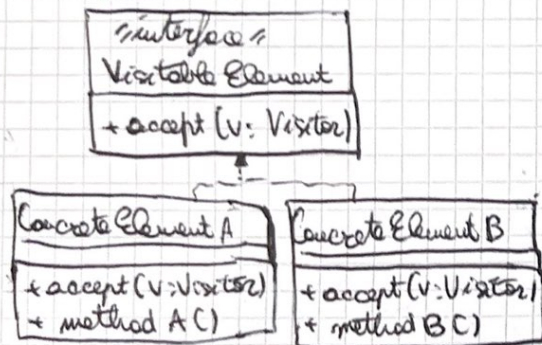 "interface"
Visitable Element
+ accept (v: Visitor)
Concrete Element A
+ accept (v: Visitor)
+ method A()
Concrete Element B
+ accept (v: Visitor)
+ method B()